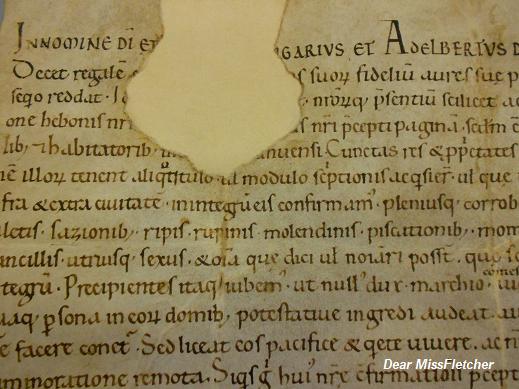 INNOMINE DI ET GARIUS ET ADELBERTUS D
Decet regale suoꝝ fideliū aures sue p
seqo reddat · nr̄oꝝq; p̄sentiū scilicet ac
one hebonis nr̄i nr̄i p̄cepti paginā
lib; & habitatorib; ianuensi Cunctas res & p̄p̄etates
illoꝝ tenent aliq titulo ul modulo
fra & extra civitate · in integrū eis confirmam' · pleniusq; corrob
letis · sazionib; · ripis · rupinis · molendinis · piscationib; · mon
ancillis · utriusq; sexus · & om̄ia que dici ul noiari poss̄t · que s
tegrū · Precipientes itaq; iubem' · ut null' dux · marchio ·
uaq; p̄sona in eoꝝ domib; potestative ingredi audeat · au
e facere conet̄ · Sed liceat eos pacifice & qete vivere · ac n
inmoratione remota · Siq̄s g̊ hui' nr̄e c̄firmationis
Dear MissFletcher